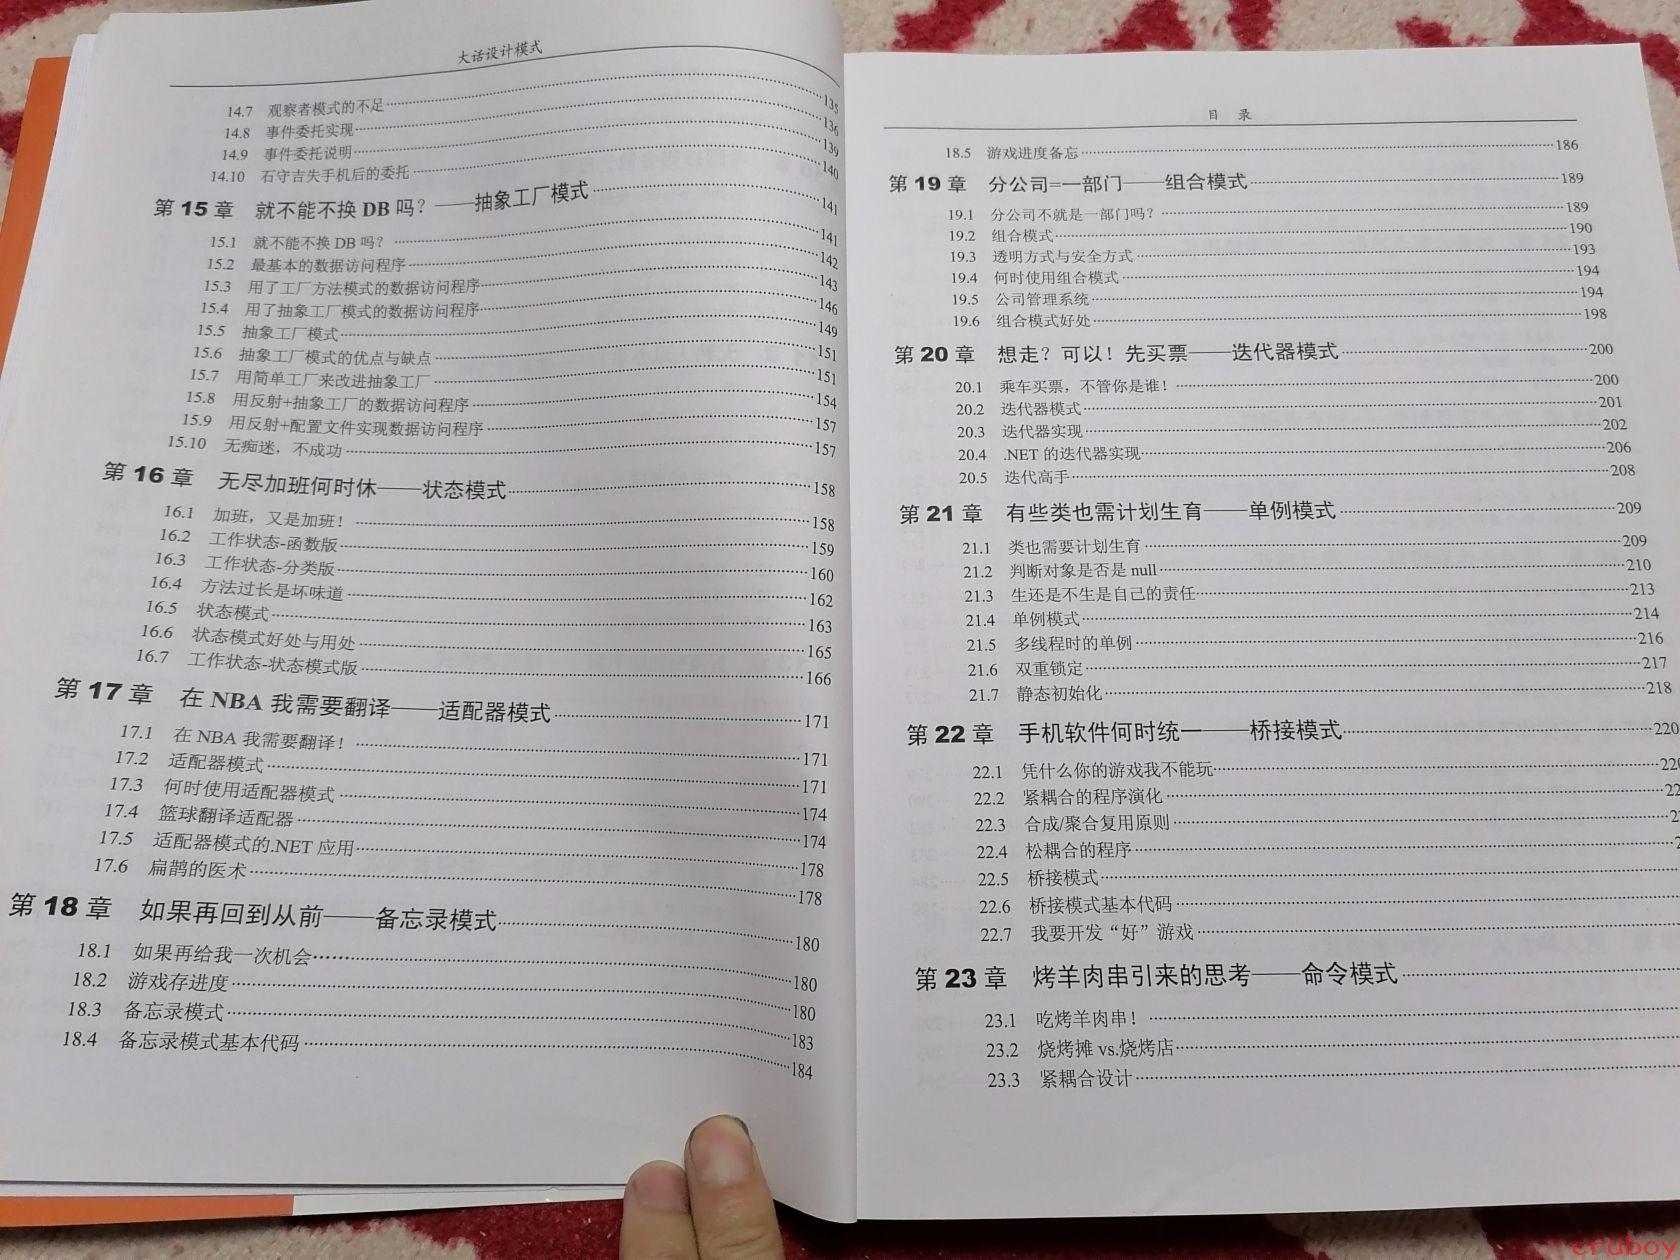 大话设计模式
14.7 观察者模式的不足 135
14.8 事件委托实现 136
14.9 事件委托说明 139
14.10 石守吉失手机后的委托 140
第 15 章 就不能不换 DB 吗？——抽象工厂模式 141
15.1 就不能不换 DB 吗？ 141
15.2 最基本的数据访问程序 142
15.3 用了工厂方法模式的数据访问程序 143
15.4 用了抽象工厂模式的数据访问程序 146
15.5 抽象工厂模式 149
15.6 抽象工厂模式的优点与缺点 151
15.7 用简单工厂来改进抽象工厂 151
15.8 用反射+抽象工厂的数据访问程序 154
15.9 用反射+配置文件实现数据访问程序 157
15.10 无痴迷，不成功 157
第 16 章 无尽加班何时休——状态模式 158
16.1 加班，又是加班！ 158
16.2 工作状态-函数版 159
16.3 工作状态-分类版 160
16.4 方法过长是坏味道 162
16.5 状态模式 163
16.6 状态模式好处与用处 165
16.7 工作状态-状态模式版 166
第 17 章 在 NBA 我需要翻译——适配器模式 171
17.1 在 NBA 我需要翻译！ 171
17.2 适配器模式 171
17.3 何时使用适配器模式 174
17.4 篮球翻译适配器 174
17.5 适配器模式的.NET 应用 178
17.6 扁鹊的医术 178
第 18 章 如果再回到从前——备忘录模式 180
18.1 如果再给我一次机会 180
18.2 游戏存进度 180
18.3 备忘录模式 183
18.4 备忘录模式基本代码 184
目 录
18.5 游戏进度备忘 186
第 19 章 分公司=一部门——组合模式 189
19.1 分公司不就是一部门吗？ 189
19.2 组合模式 190
19.3 透明方式与安全方式 193
19.4 何时使用组合模式 194
19.5 公司管理系统 194
19.6 组合模式好处 198
第 20 章 想走？可以！先买票——迭代器模式 200
20.1 乘车买票，不管你是谁！ 200
20.2 迭代器模式 201
20.3 迭代器实现 202
20.4 .NET 的迭代器实现 206
20.5 迭代高手 208
第 21 章 有些类也需计划生育——单例模式 209
21.1 类也需要计划生育 209
21.2 判断对象是否是 null 210
21.3 生还是不生是自己的责任 213
21.4 单例模式 214
21.5 多线程时的单例 216
21.6 双重锁定 217
21.7 静态初始化 218
第 22 章 手机软件何时统一——桥接模式 220
22.1 凭什么你的游戏我不能玩
22.2 紧耦合的程序演化
22.3 合成/聚合复用原则
22.4 松耦合的程序
22.5 桥接模式
22.6 桥接模式基本代码
22.7 我要开发“好”游戏
第 23 章 烤羊肉串引来的思考——命令模式
23.1 吃烤羊肉串！
23.2 烧烤摊 vs.烧烤店
23.3 紧耦合设计
cruboy